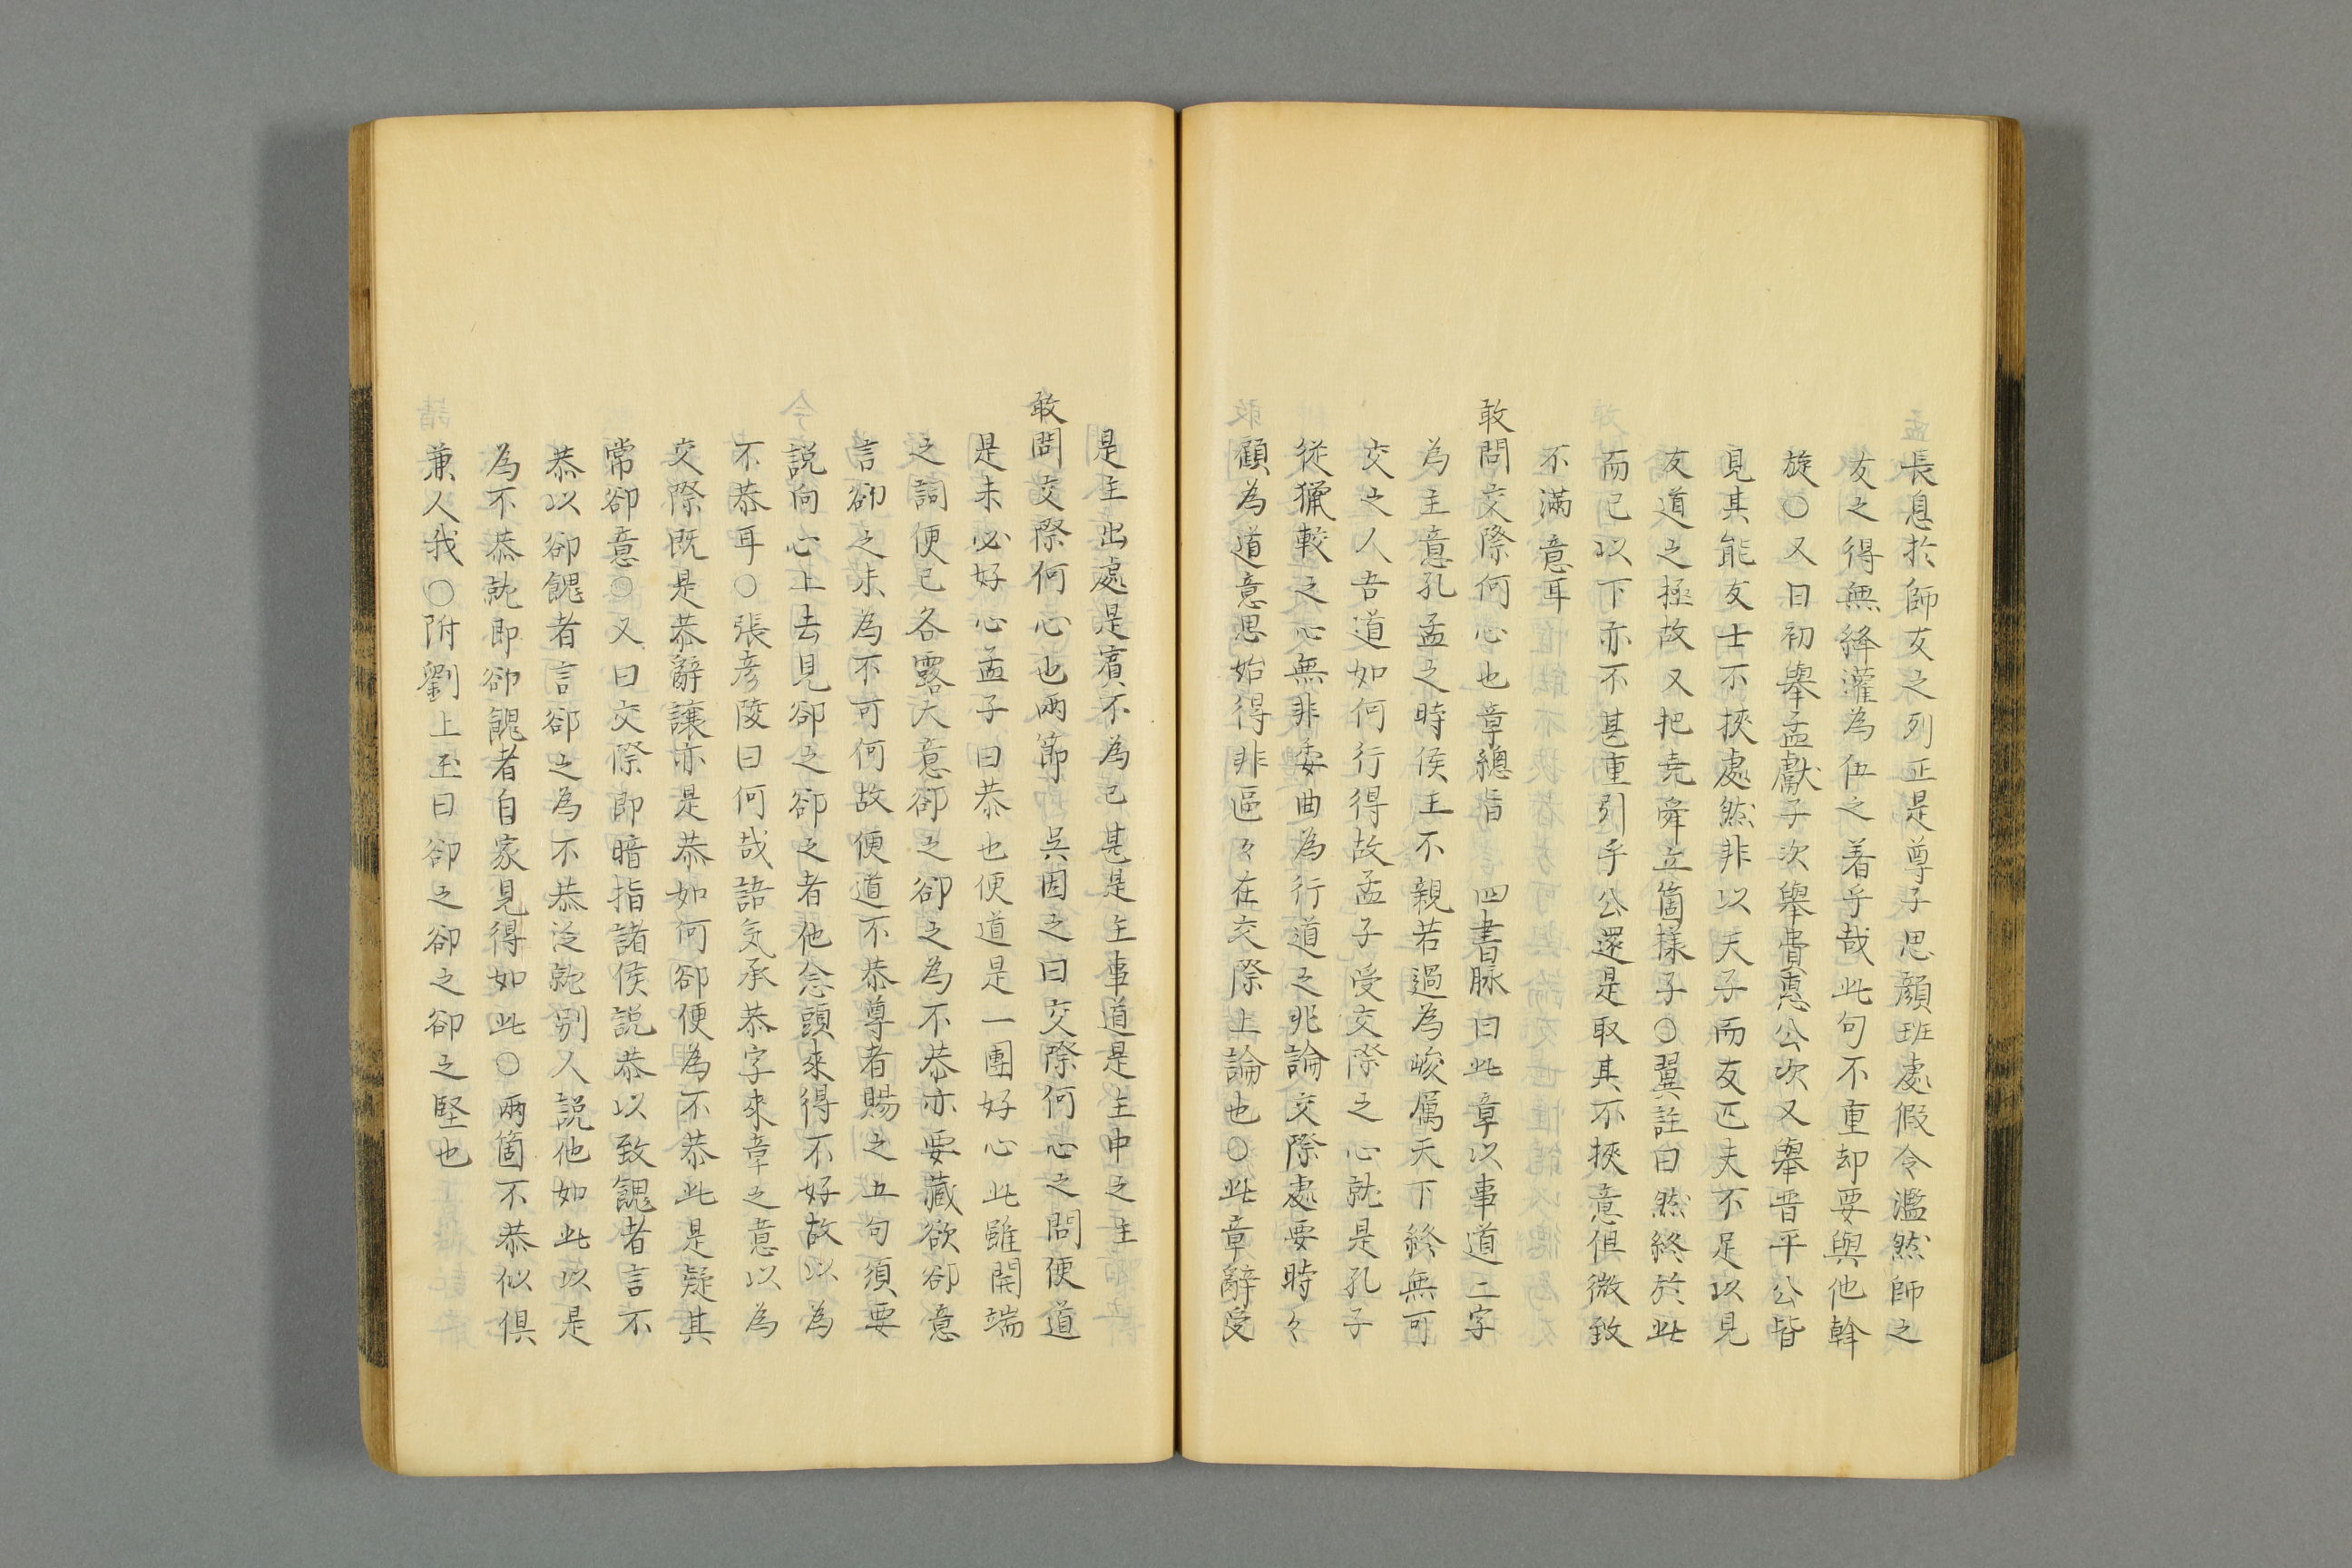 長息於師友之列正是尊子思顏班處假令濫然師之
友之得無絳灌為伍之着乎哉此句不重却要與他斡
旋○又曰初舉孟獻子次舉費惠公次又舉晋平公皆
見其能友士不挾處然非以天子而友匹夫不足以見
友道之極故又把堯舜立箇樣子○翼註曰然終於此
而已以下亦不甚重引乎公還是取其不挾意但微致
不滿意耳
敢問交際何心也章總旨　四書脉曰此章以事道二字
為主意孔孟之時侯王不親若過為峻厲天下終無可
交之人吾道如何行得故孟子受交際之心就是孔子
從獵較之心無非委曲為行道之兆論交際處要時々
顧為道意思始得非區々在交際上論也○此章辭受
是主出處是賓不為已甚是主事道是主中之主
敢問交際何心也兩節　吳因之曰交際何心之問便道
是未必好心孟子曰恭也便道是一團好心此雖開端
之詞便已各露大意卻之卻之為不恭亦要藏欲卻意
言卻之未為不可何故便道不恭尊者賜之五句須要
説向心上去見卻之卻之者他念頭來得不好故以為
不恭耳○張彥陵曰何哉語気承恭字來章之意以為
交際既是恭辭讓亦是恭如何卻便為不恭此是疑其
常卻意○又曰交際即暗指諸侯説恭以致餽者言不
恭以卻餽者言卻之為不恭泛就别人説他如此以是
為不恭就即卻餽者自家見得如此○兩箇不恭似俱
兼人我○附劉上玉曰卻之卻之卻之堅也